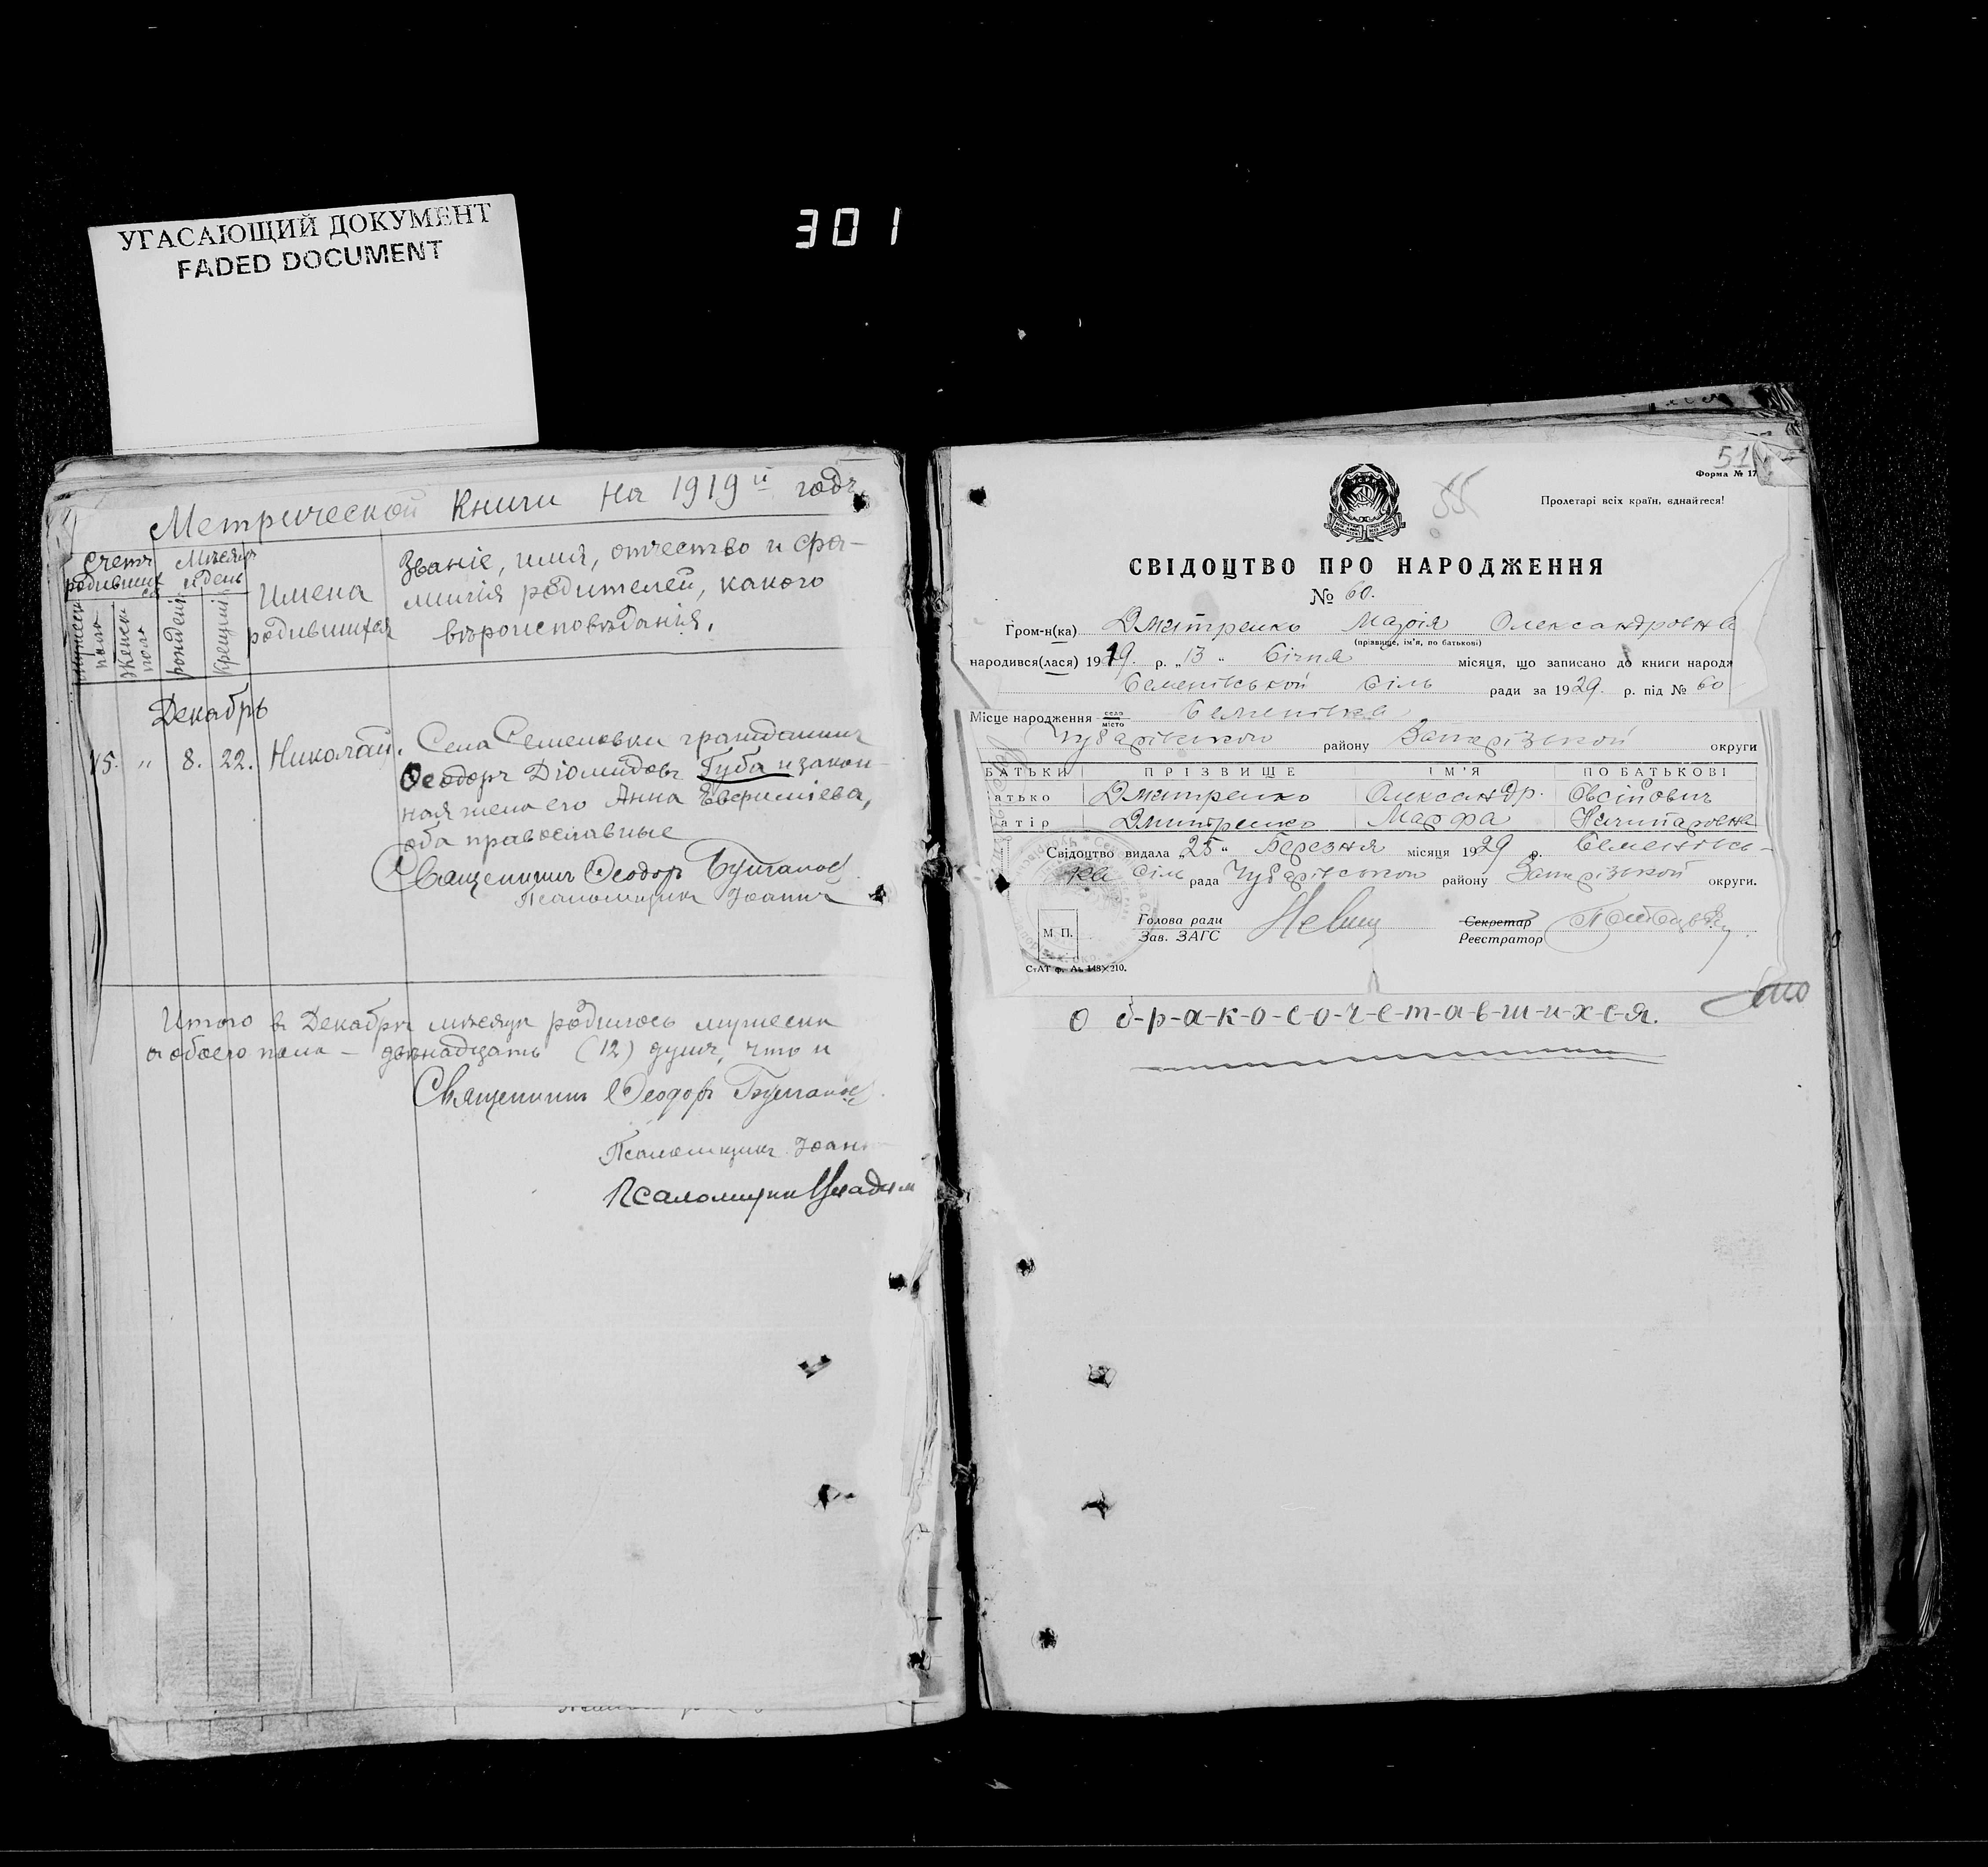 УГАСАЮЩИЙ ДОКУМЕНТ
FADED DOCUMENT
301
Метрической Книги на 1919й годъ
Счетъ родившихся
Мѣсяцъ и день
Имена родившихся
Званіе, имя, отчество и фа-
милія родителей, какого
вѣроисповѣданія.
мужеск. пола
женск. пола
рожденія
крещенія
Декабрь
15. " 8. 22. Николай.
Села Семеновки гражданинъ
Ѳеодоръ Діомидовъ Губа и закон-
ная жена его Анна Евѳиміева,
оба православные
Священникъ Ѳеодоръ
Псаломщикъ Іоаннъ
Итого въ Декабрѣ мѣсяцѣ родилось мужеска
и обоего пола - двѣнадцать (12) душъ, что и
Священникъ Ѳеодоръ
Псаломщикъ Іоанн
Псаломщикъ
51
Форма № 17
55
Пролетарі всіх країн, єднайтеся!
СВІДОЦТВО ПРО НАРОДЖЕННЯ
№ 60.
Гром-н(ка) Дмитренко Марія Олександровна
(прізвище, ім'я, по батькові)
народився(лася) 1919. р. „13" Січня місяця, що записано до книги народж
Семенівської Сіль ради за 1929. р. під № 60
Місце народження село місто Семенівка
Чубарівського району Запорізької округи
БАТЬКИ ПРІЗВИЩЕ ІМ'Я ПО БАТЬКОВІ
атько Дмитренко Олександр. Овсійович
атір Дмитренко Марфа
Свідоцтво видала „25" Березня місяця 1929 р. Семенівсь-
ка Сіль рада Чубарівського району Запорізької округи.
М. П.
Голова ради
Зав. ЗАГС
Секретар
Реєстратор
СтАТ ф. А₅ 148×210.
О б-р-а-к-о-с-о-ч-е-т-а-в-ш-и-х-с-я.